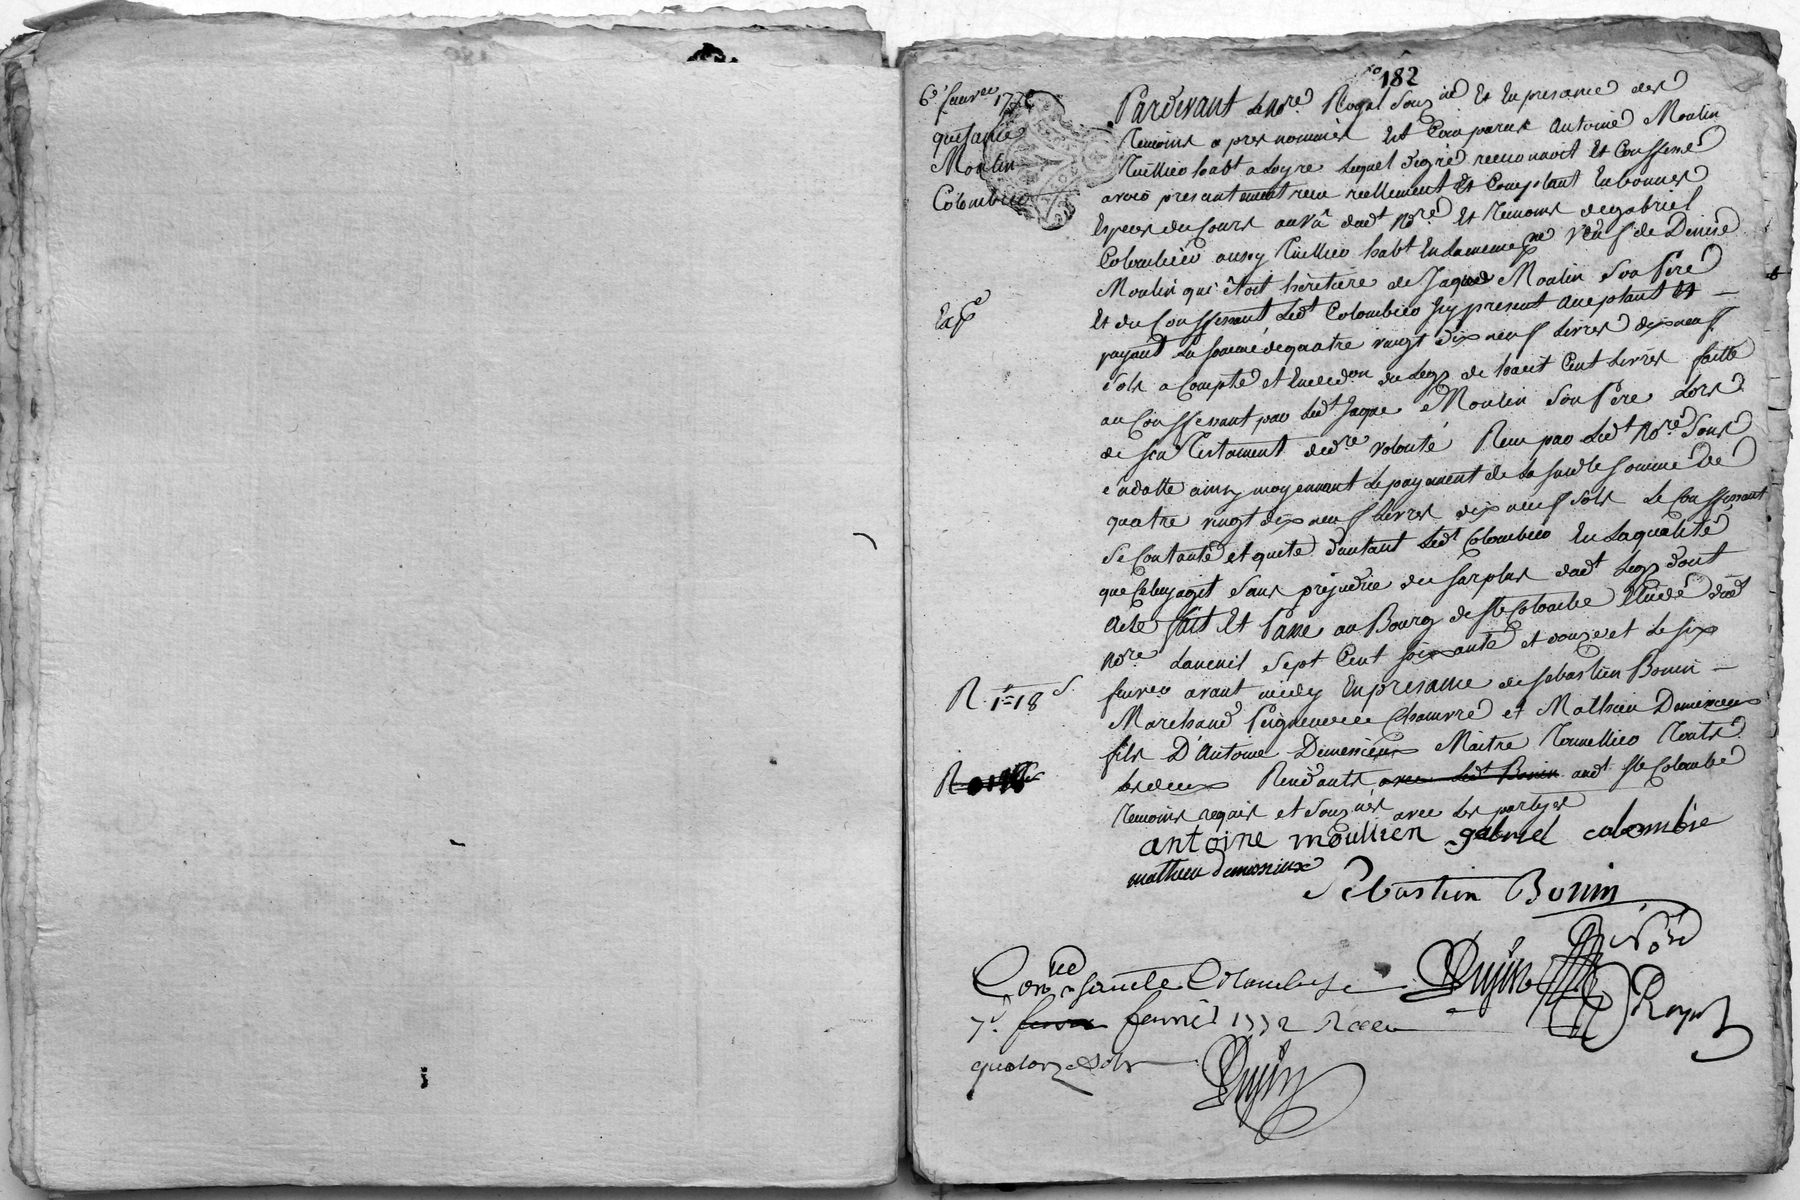 182
6e fevrer 1772
quittance
Moulin
Colombier
Exp
R 1# 18 s
Pardevant le Nore Royal Souz né Et En presance des
temoins a pres nommés Est Comparut Antoine Moulin
Tuillier habt a Loyre Lequel degré reconnoit Et Confesse
avoir presantement reçu reellement Et Comptant En bonnes
Especes du Cours au vû dudt Nore Et temoins de gabriel
Colombier aussy Tuillier habt En la meme psse Veuf de Denise
Moulin qui êtoit hèritiere de Jaque Moulin Son Pere
Et du Confessant Ledt Colombier Jcy present Aceptant Et —
payant La somme de quatre vingt dix neuf Livres dix neuf
sols a Compte et En don du Legs de huit Cent Livres faitte
au Confessant par Ledt Jaque Moulin Son Pere Lors
de son Testament de dre volonté Reçu par Ledt Nore Sous
sa datte ainsy moyennant Le payement de la susdte somme de
quatre vingt dix neuf Livres dix neuf sols Le Confessant
Se Contante et quitte d'autant Ledt Colombier En La qualité
que Celuy agit Sans prejudice du surplus dudt Legs dont
Acte fait Et Passé au Bourg de Ste Colombe Etude dudt
Nore Lan mil Sept Cent soixante et douze et Le six
fevrer avant midy En presance de sebastien Bonin —
Marchand Peigneur de Chanvre et Mathieu Demesieux
fils D'Antoine Demesieux Maitre Tonnellier Touts
Les deux Residants avec Ledt Bonin audt Ste Colombe
temoins requis et Souz nés avec Les partyes
antoine moullien gabriel colombie
mathieu demesieux
Sebastien Bonin
Nore
Royal
Conlle a saincte Colombe le
7e fevrié 1772 Reçu
quatorze sols